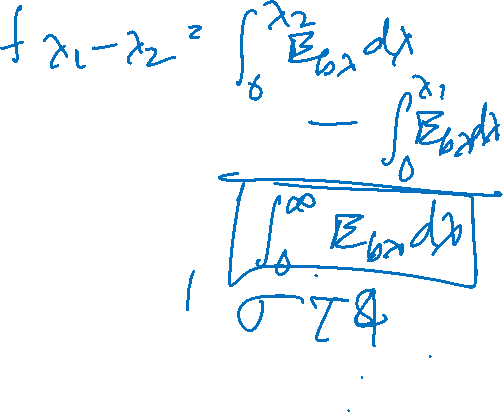 f λ₁-λ₂ = ∫₀^λ₂ E_bλ dλ
— ∫₀^λ₁ E_bλ dλ
∫₀^∞ E_bλ dλ
σT4